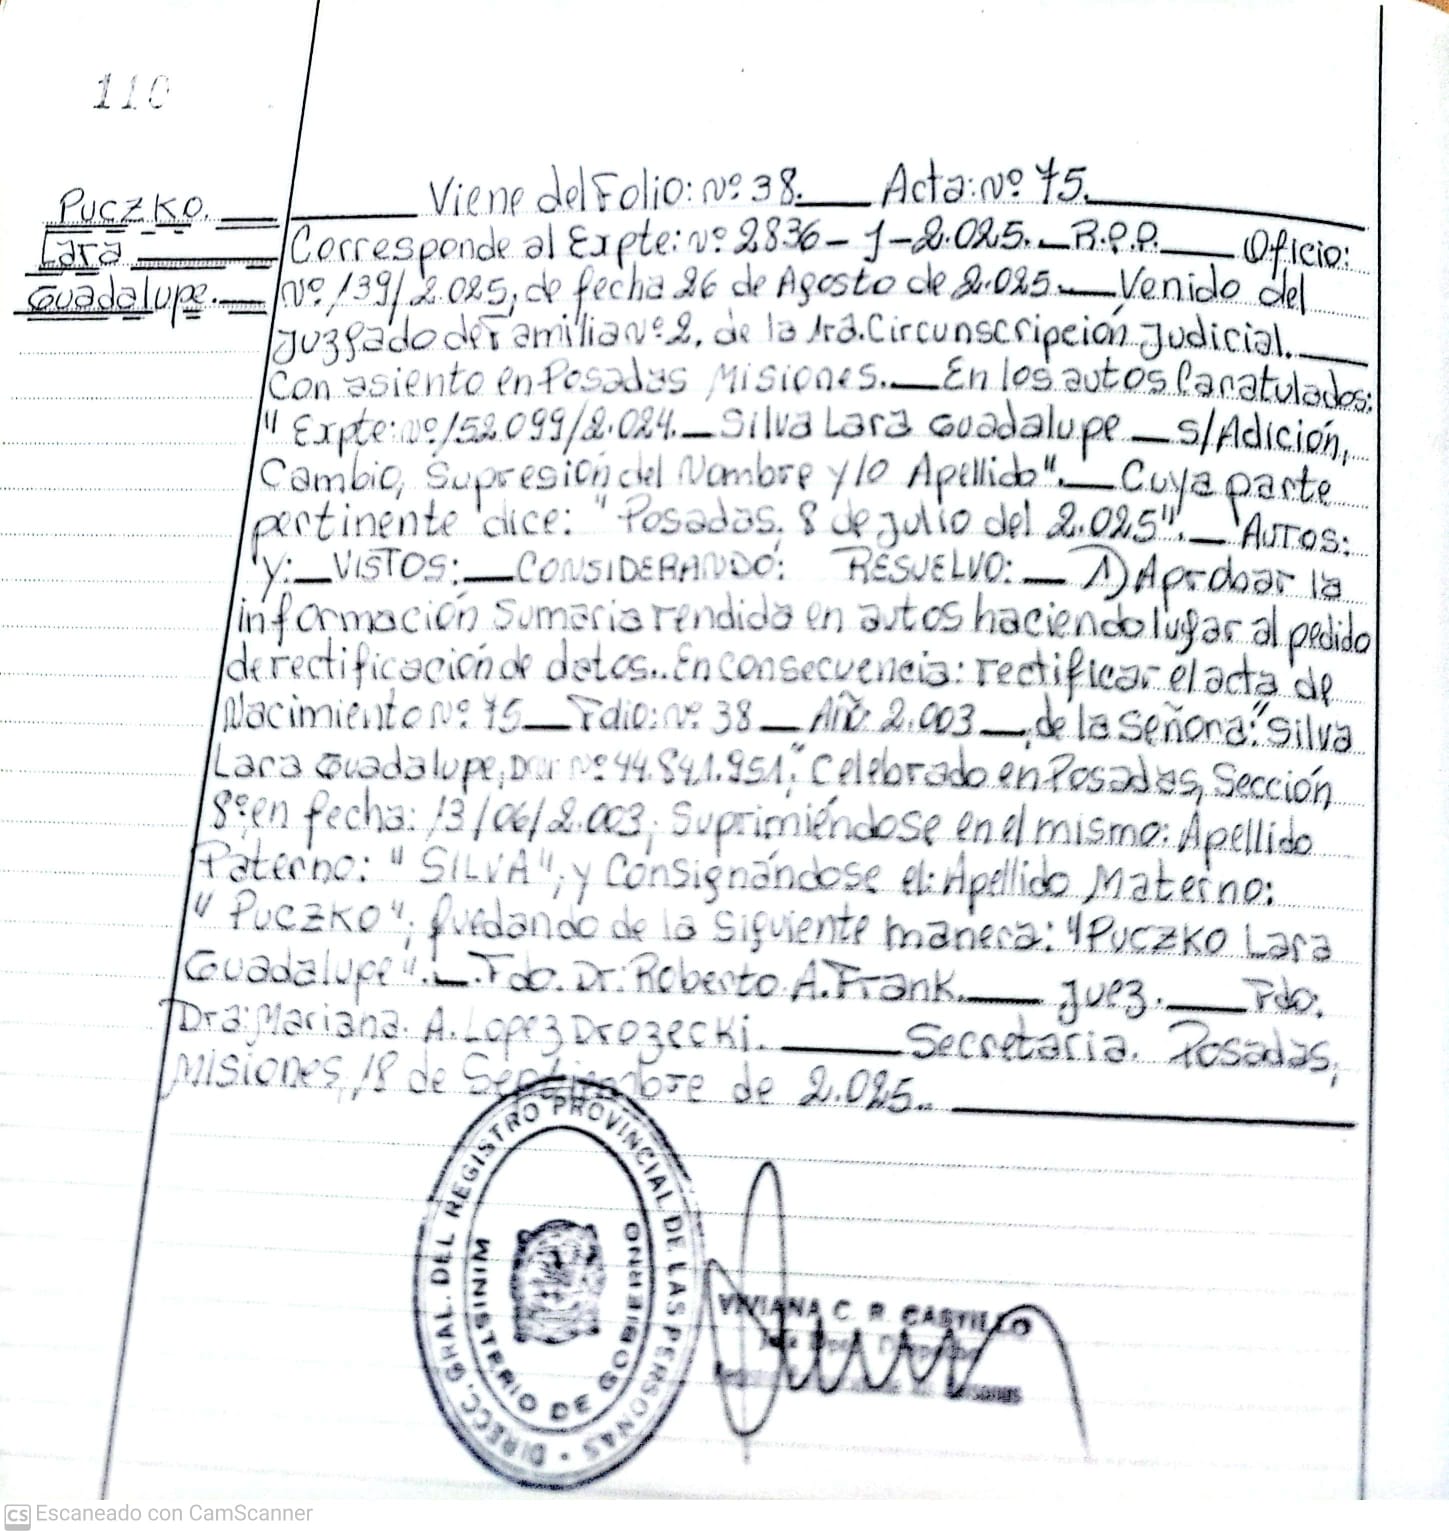 110
Puczko.
Lara
Guadalupe.
Viene del Folio: Nº 38. Acta: Nº 75.
Corresponde al Expte: Nº 2836-J-2.025. R.P.P. Oficio:
Nº 139/2.025, de fecha 26 de Agosto de 2.025. Venido del
Juzgado de Familia Nº 2, de la 1ra. Circunscripción Judicial.
Con asiento en Posadas Misiones. En los autos Caratulados:
"Expte: Nº 152.099/2.024. Silva Lara Guadalupe s/Adición,
Cambio, Supresión del Nombre y/o Apellido". Cuya parte
pertinente dice: "Posadas, 8 de julio del 2.025". AUTOS:
Y: VISTOS: CONSIDERANDO: RESUELVO: 1) Aprobar la
información Sumaria rendida en autos haciendo lugar al pedido
de rectificación de datos.. En consecuencia: rectificar el acta de
Nacimiento Nº 75 Folio: Nº 38 Año: 2.003, de la Señora: "Silva
Lara Guadalupe, DNI Nº 44.841.951", Celebrado en Posadas, Sección
8º en fecha: 13/06/2.003; Suprimiéndose en el mismo: Apellido
Paterno: "SILVA", y Consignándose el: Apellido Materno:
"PUCZKO", quedando de la siguiente manera: "PUCZKO Lara
Guadalupe". Fdo. Dr. Roberto. A. Frank. Juez. Fdo:
Dra: Mariana. A. Lopez Drozecki. Secretaria. Posadas,
Misiones, 18 de Septiembre de 2.025..
DIRECC. GRAL. DEL REGISTRO PROVINCIAL DE LAS PERSONAS
MINISTERIO DE GOBIERNO
VIVIANA C. R. CASTILLO
CS Escaneado con CamScanner